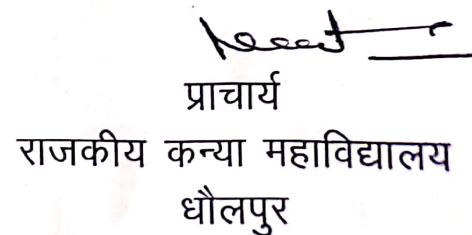 प्राचार्य
राजकीय कन्या महाविद्यालय
धौलपुर